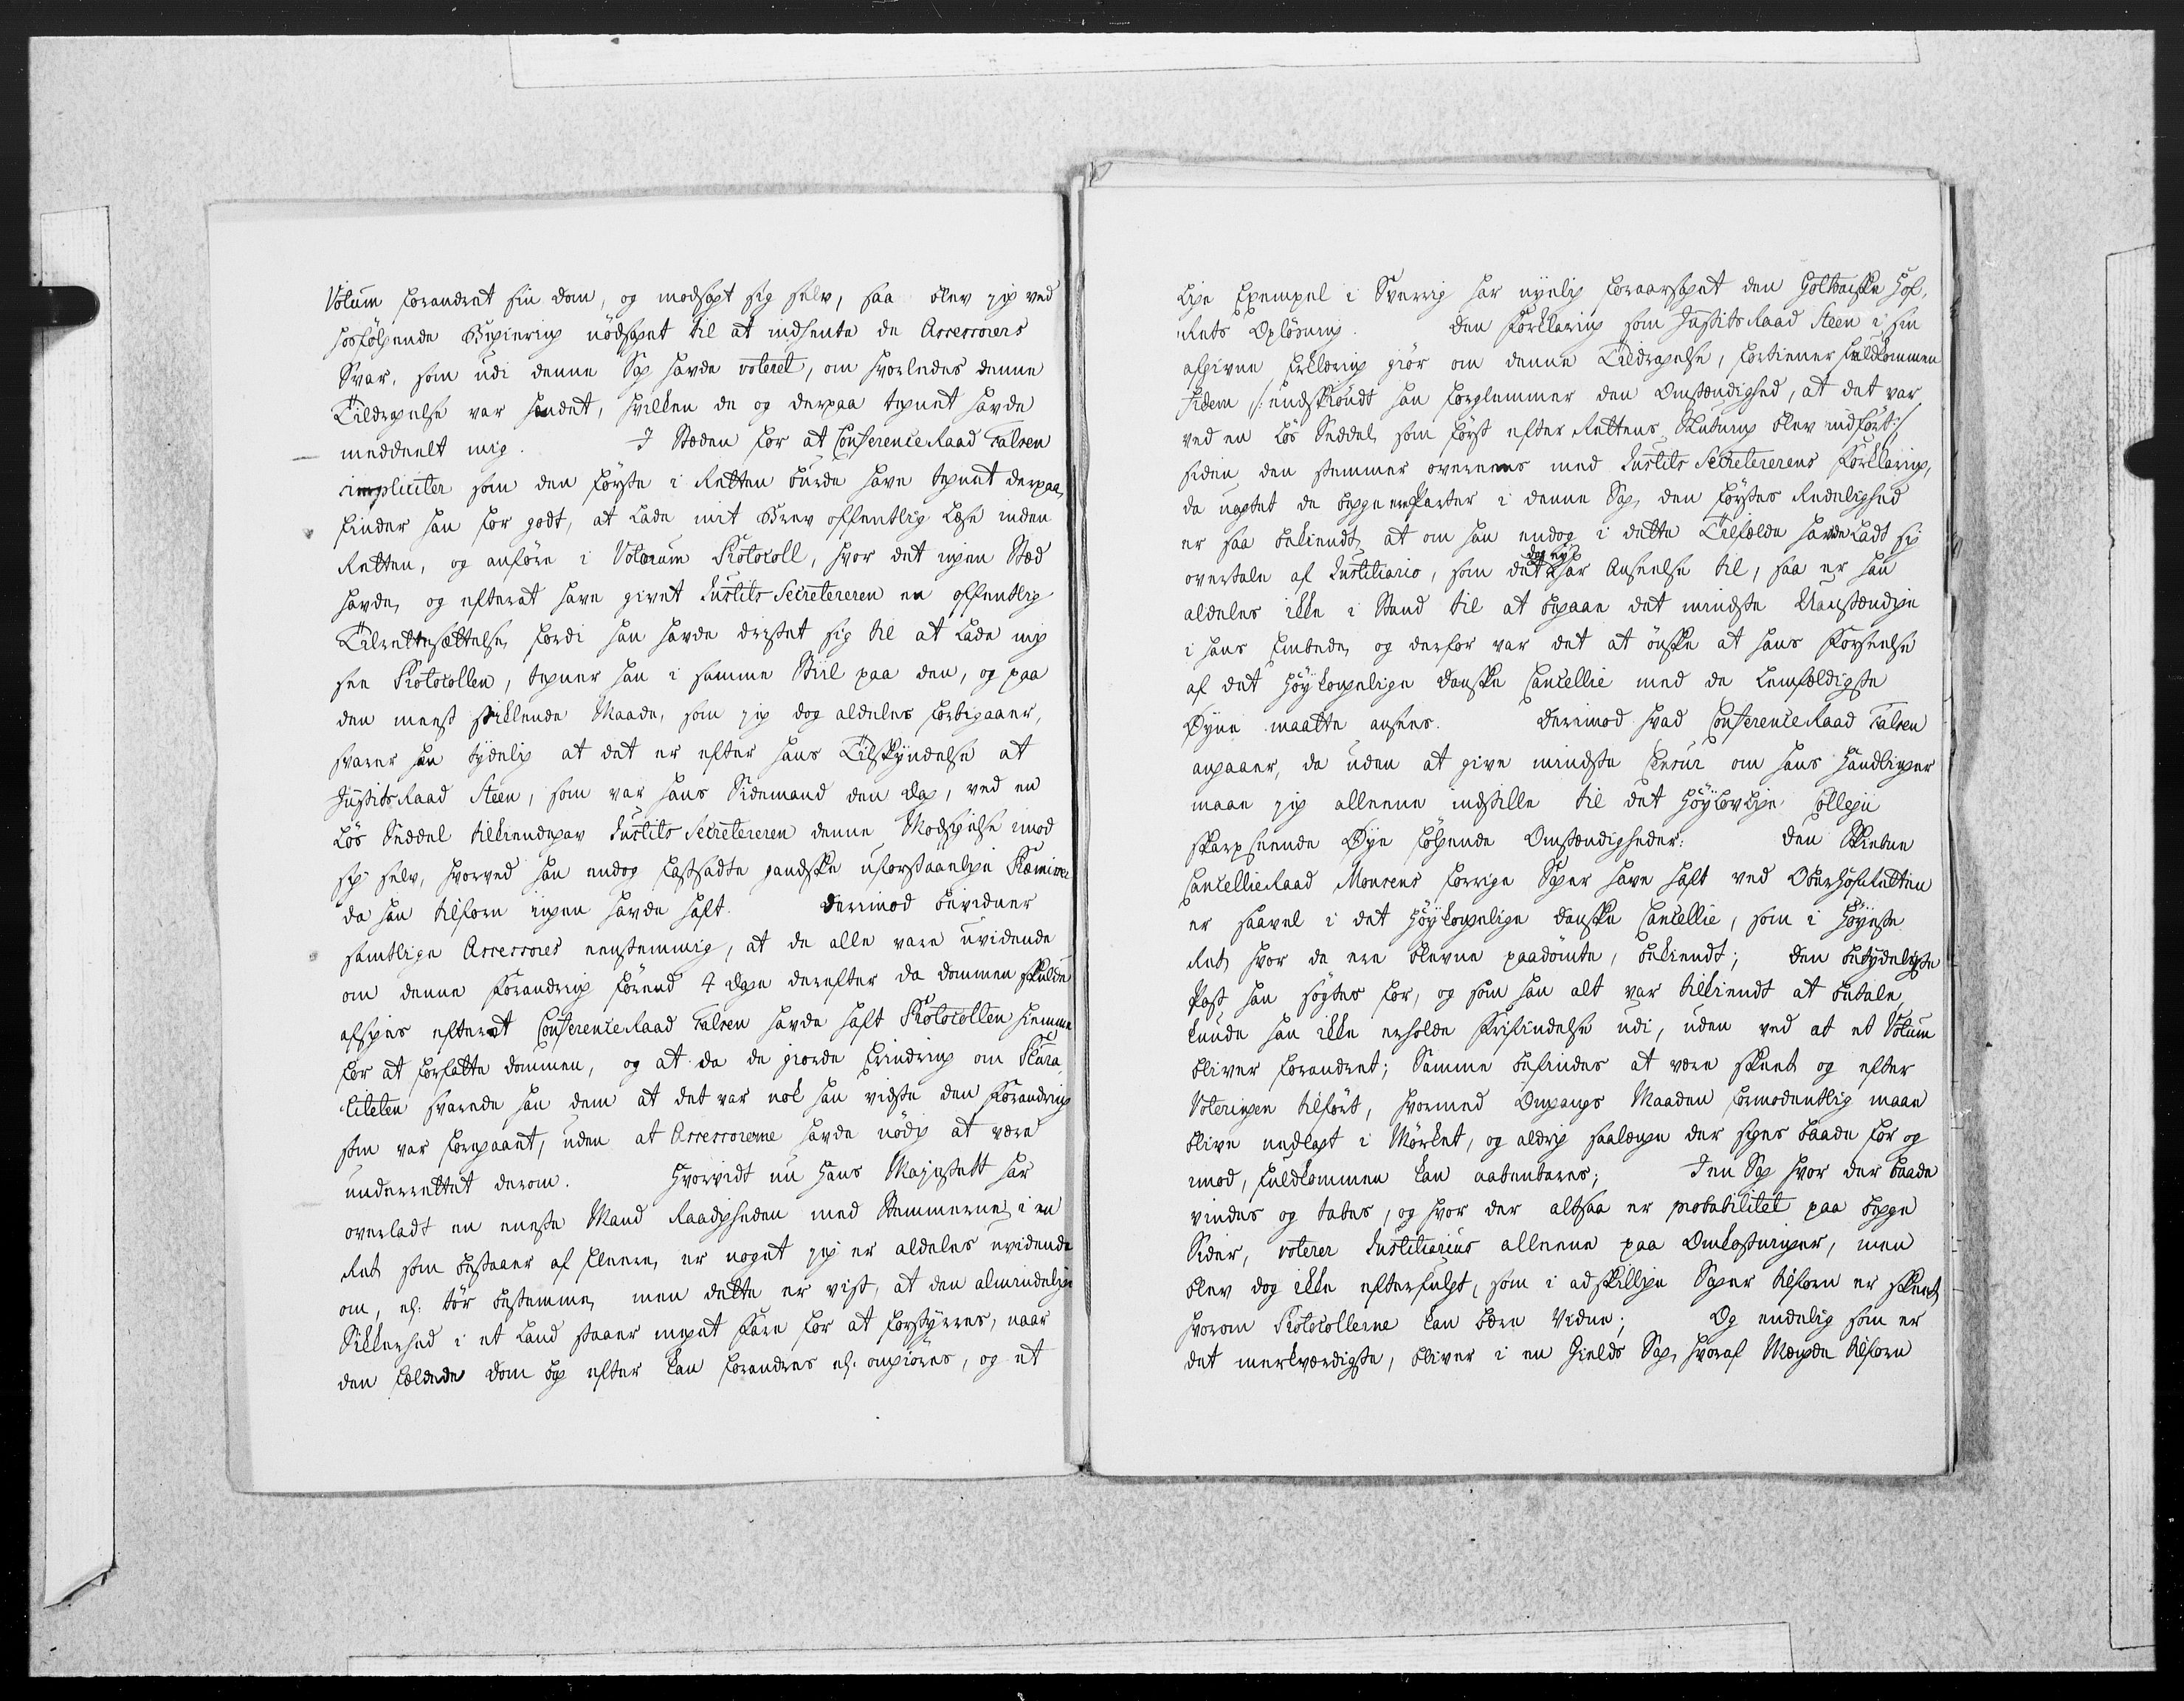 Votum forandret sin Dom, og modsagt sig selv, saa blev jeg ved
hosfölgende Begiering nödsaget til at indhente de Assessorers
Svar, som udi denne Sag havde voteret, om hvorledes denne
Tildragelse var hendet, hvilken de og derpaa tegnet havde
meddeelt mig. I Steden for at ConferenceRaad Falsen
simpliciter som den förste i Retten burde have tegnet derpaa,
finder han for godt, at lade mit Brev offentlig læse inden
Retten, og anföre i Votorum Protocoll, hvor det ingen Stæd
havde, og efterat have givet Justits Secretereren en offentlig
Tilrettesættelse, fordi han havde dristet sig til at lade mig
see Protocollen, tegner han i samme Stiil paa den, og paa
den meest stiklende Maade, som jeg dog aldeles forbigaaer,
svarer han tydelig at det er efter hans Tilskyndelse at
JustitsRaad Steen, som var hans Sidemand den Dag, ved en
lös Seddel tilkiendegav Justits Secretereren denne Modsigelse imod
sig selv, hvorved han endog fastsadte gandske uforstaaelige Præmisser
da han tilforn ingen havde haft. Derimod bevidner
samtlige Assessores eenstemmig, at de alle vare uvidende
om denne Forandring förend 4 Dage derefter da Dommen skulde
afsiges efterat ConferenceRaad Falsen havde haft Protocollen hiemme
for at forfatte Dommen, og at da de giorde Erindring om Plura¬
liteten svarede han dem at det var nok han vidste den Forandring
som var foregaaet, uden at Assessorerne havde nödig at være
underrettet derom. Hvorvidt nu Hans Majestætt har
overladt en eneste Mand Raadigheden med Stemmerne i en
Ret, som bestaaer af fleere, er noget jeg er aldeles uvidende
om, ell: tör bestemme, men dette er vist, at den almindelige
Sikkerhed i et Land staaer meget Fare for at forstyrres, naar
den fældede Dom bag efter kan forandres ell: omgiöres, og et
lige Exempel i Sverrig har nyelig foraarsaget den Gothaiske Hof,
Rets Oplösning. Den Forklaring som JustitsRaad Steen i sin
afgivne Erklæring giör om denne Tildragelse, fortiener fuldkommen
Fidem /: endskiöndt han forglemmer den Omstændighed, at det var
ved en lös Seddel, som först efter Rettens Slutning blev indfört :/
siden den stemmer overeens med Justits Secretererens Forklaring,
da uagtet de begge ere Parter i denne Sag, den förstes Redelighed
er saa bekiendt, at om han endog i dette Tilfælde havde ladt sig
overtale af Justitiario, som det har Anseelse til, saa er han
aldeles ikke i Stand til at begaae det mindste Uanstændige
i hans Embede, og derfor var det at önske at hans Forseelse
af det Höykongelige Danske Cancellie med de lemfældigste
Öyne maatte ansees. Derimod hvad ConferenceRaad Falsen
angaaer, da uden at give mindste Censur om hans Handlinger
maae jeg alleene indstille til det Höylovlige Collegii
skarpseende Öye fölgende Omstændigheder: Den Skiebne
CancellieRaad Monsens forrige Sager have haft ved OberHofRetten
er saavel i det Höykongelige Danske Cancellie, som i Höyeste
Ret, hvor de ere blevne paadömte, bekiendt; Den betydeligste
Post han sögtes for, og som han alt var tilkiendt at betale,
kunde han ikke erholde Frifindelse udi, uden ved at et Votum
bliver forandret; Samme befindes at være skeet og efter
Voteringen tilfört, hvormed Omgangs Maaden formodentlig maae
blive nedlagt i Mörket, og aldrig saalænge der siges baade for og
imod, fuldkommen kan aabenbares; I en Sag hvor der baade
vindes og tabes, og hvor der altsaa er probabilitet paa begge
Sider, voterer Justitiarius alleene paa Omkostninger, men
blev dog ikke efterfulgt, som i adskillige Sager tilforn er skeet,
hvorom Protocollerne kan bære Vidne; Og endelig som er
det merkværdigste, bliver i en Gields Sag, hvoraf Mængde tilforn